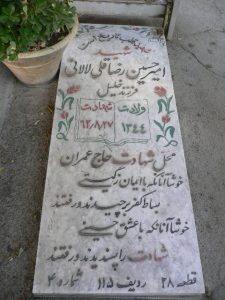 شهید
امیرحسین رضاقلی لالانی
فرزند خلیل
ولادت
شهادت
۱۳۴۴
۶۲/۸/۲۷
محل شهادت حاج عمران
خوشا آنانکه با ایمان
بساط کفر برچیدند و رفتند
خوشا آنانکه با عشق حسینی
شهادت را پسندیدند و رفتند
قطعه ۲۸ ردیف ۱۱۵ شماره ۴